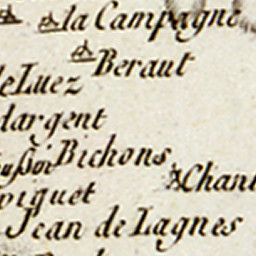 la Campagne
Beraut
deLuez
dargent
Bichons
Chan
piquet
Jean de Lagnes